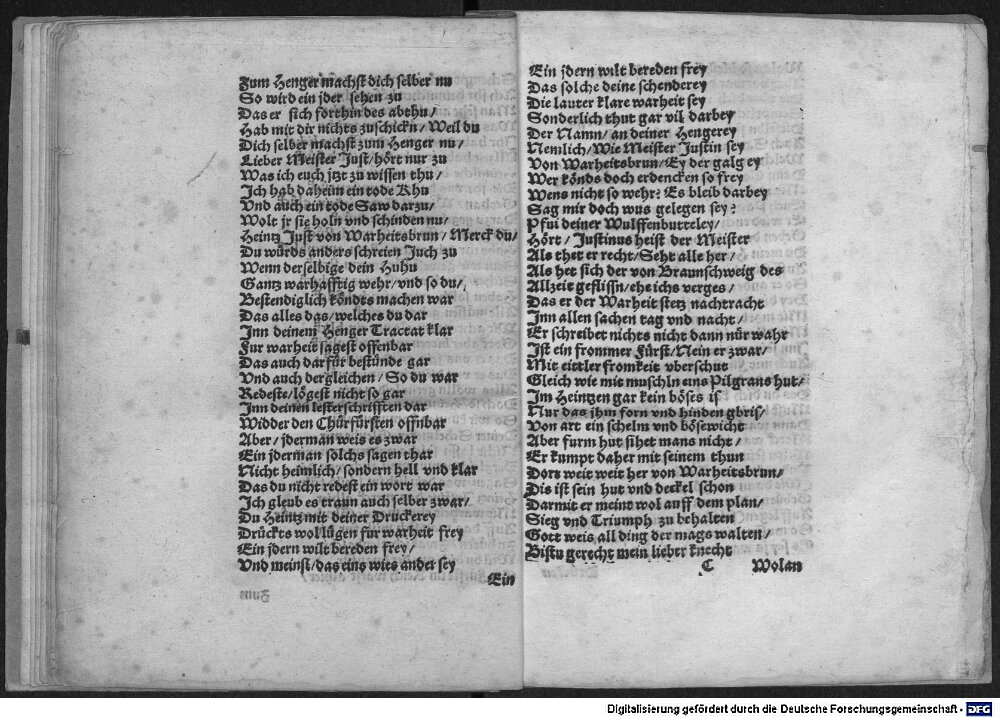 Zum Henger machst dich selber nu
So wird ein jder sehen zu
Das er sich forthin des abthu/
Hab mit dir nichts zuschickn/ Weil du
Dich selber machst zum Henger nu/
Lieber Meister Just/hört nur zu
Was ich euch jtzt zu wissen thu/
Ich hab daheim ein tode Khu
Vnd auch ein tode Saw darzu/
Wolt jr sie holn vnd schinden nu/
Heintz Just von Warheitsbrun/ Merck du/
Du würds anders schreien Juch zu
Wenn derselbige dein Huhu
Gantz warhafftig wehr/vnd so du/
Bestendiglich köndts machen war
Das alles das/welches du dar
Inn deinem Henger Tractat klar
Fur warheit sagest offenbar
Das auch darfür bestünde gar
Vnd auch dergleichen/ So du war
Redeste/lögest nicht so gar
Inn deinen lesterschrifften dar
Widder den Chürfürsten offnbar
Aber/ jderman weis es zwar
Ein jderman solchs sagen thar
Nicht heimlich/sondern hell vnd klar
Das du nicht redest ein wort war
Ich gleub es traun auch selber zwar/
Du Heintz mit deiner Druckerey
Drückts wol lügen fur warheit frey
Ein jdern wilt bereden frey/
Vnd meinst/das eins wies ander sey
Ein
Ein jdern wilt bereden frey
Das solche deine schenderey
Die lauter klare warheit sey
Sonderlich thut gar vil darbey
Der Namn/an deiner Hengerey
Nemlich/Wie Meister Justin sey
Von Warheitsbrun/Ey der galg ey
Wer könds doch erdencken so frey
Wens nicht so wehr? Es bleib darbey
Sag mir doch wus gelegen sey?
Pfui deiner Wulffenbutteley/
Hört/ Justinus heist der Meister
Als thet er recht/Seht alle her/
Als het sich der von Braunschweig des
Allzeit geflissn/ehe ichs verges/
Das er der Warheit stetz nachtracht
Inn allen sachen tag vnd nacht/
Er schreibet nichts nicht dann nür wahr
Ist ein frommer Fürst/Nein er zwar/
Mit eittler fromkeit vberschut
Gleich wie mit muschln eins Pilgrans hut/
Im Heintzen gar kein böses is
Nur das ihm forn vnd hinden gbris/
Von art ein schelm vnd bösewicht
Aber furm hut sihet mans nicht/
Er kumpt daher mit seinem thun
Dort weit weit her von Warheitsbrun/
Dis ist sein hut vnd deckel schon
Darmit er meint wol auff dem plan/
Sieg vnd Triumph zu behalten
Gott weis all ding der mags walten/
Bistu gerecht mein lieber knecht
C Wolan
Digitalisierung gefördert durch die Deutsche Forschungsgemeinschaft - DFG